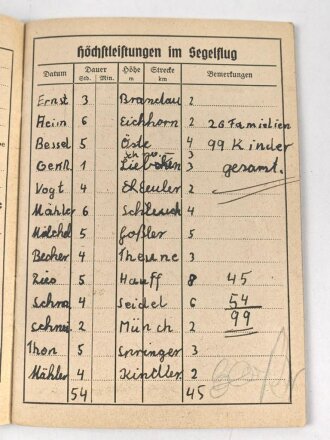 Höchstleistungen im Segelflug
Datum Dauer Höhe Strecke Bemerkungen
Std. Min. m km
Ernst 3 Brandau 2
Hein 6 Eichhorn 2 26 Familien
Bessel 5 Öste 4 99 Kinder
3
1 3 gesamt.
Vogt 4 4
Mähler 6 4
5 Goßler 5
Becher 4 Theune 3
Ries 5 Hauff 8 45
Schra 4 Seidel 6 54
Schnei 2 Münch 2 99
Thon 5 Springer 3
Mähler 4 Kindler 2
54 45